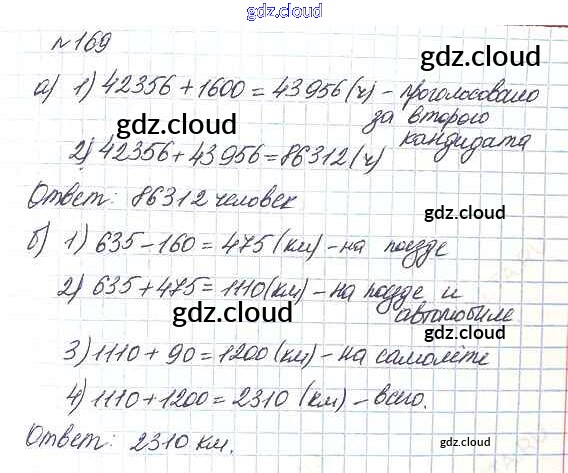 gdz.cloud
№169
gdz.cloud
gdz.cloud
а) 1) 42356 + 1600 = 43956 (ч) - проголосовано
за второго
кандидата
gdz.cloud
2) 42356 + 43956 = 86312 (ч)
Ответ: 86312 человек
gdz.cloud
б) 1) 635 - 160 = 475 (км) - на поезде
2) 635 + 475 = 1110 (км) - на поезде и
автомобиле
gdz.cloud
gdz.cloud
3) 1110 + 90 = 1200 (км) - на самолёте
4) 1110 + 1200 = 2310 (км) - всего.
Ответ: 2310 км.
gdz.cloud
gdz.cloud